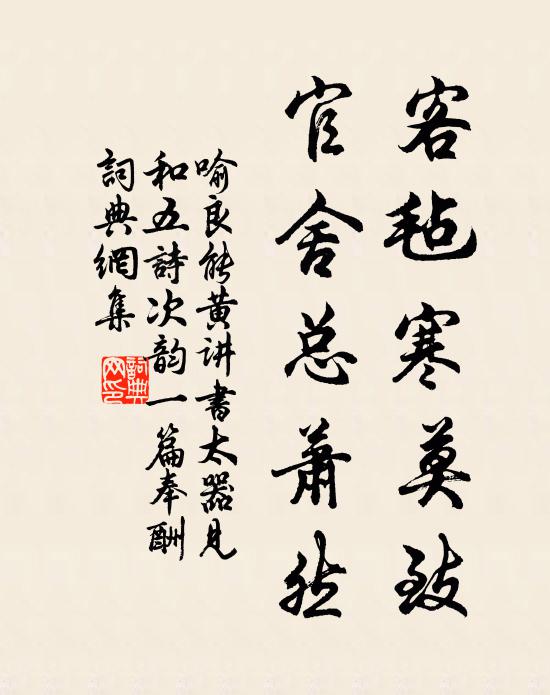 客毡寒莫致
官舍总萧然
喻良能黄讲书太器见
和五詩次韵一篇奉酬
詞典網集
詞典网印